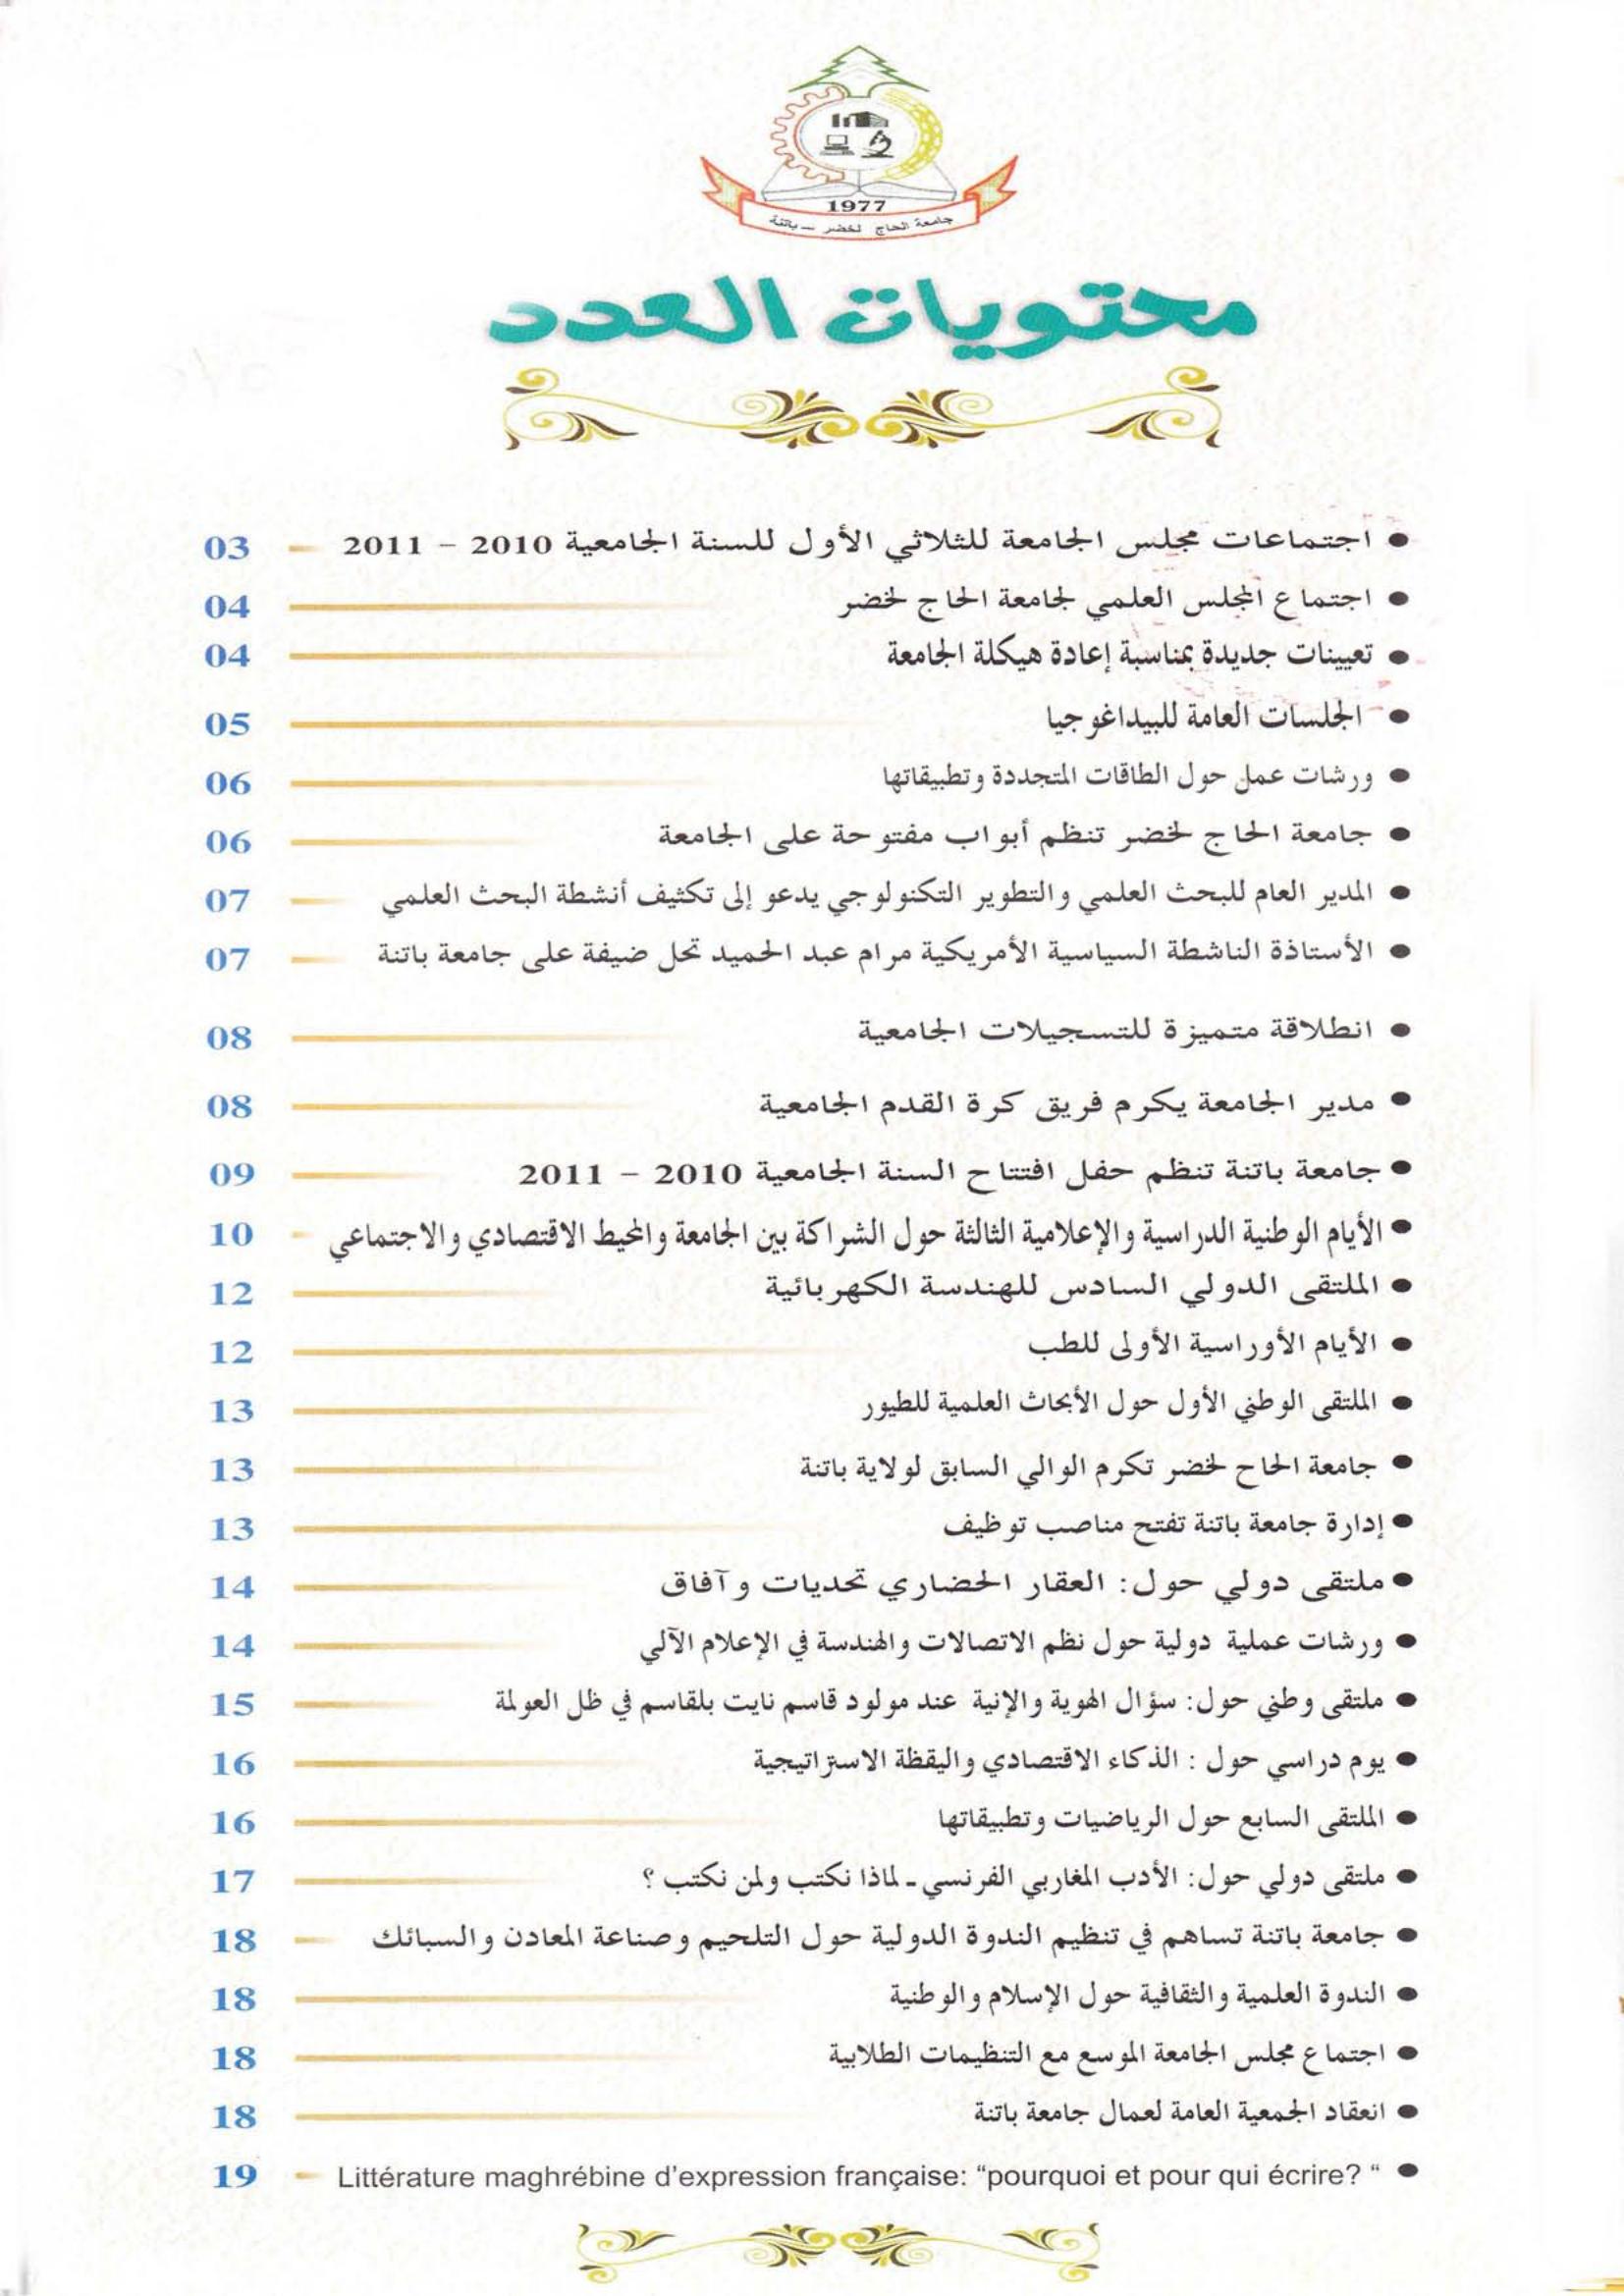 1977
جامعة الحاج لخضر – باتنة
محتويات العدد
• اجتماعات مجلس الجامعة للثلاثي الأول للسنة الجامعية 2010 – 2011 03
• اجتماع المجلس العلمي لجامعة الحاج لخضر 04
• تعيينات جديدة بمناسبة إعادة هيكلة الجامعة 04
• الجلسات العامة للبيداغوجيا 05
• ورشات عمل حول الطاقات المتجددة وتطبيقاتها 06
• جامعة الحاج لخضر تنظم أبواب مفتوحة على الجامعة 06
• المدير العام للبحث العلمي والتطوير التكنولوجي يدعو إلى تكثيف أنشطة البحث العلمي 07
• الأستاذة الناشطة السياسية الأمريكية مرام عبد الحميد تحل ضيفة على جامعة باتنة 07
• انطلاقة متميزة للتسجيلات الجامعية 08
• مدير الجامعة يكرم فريق كرة القدم الجامعية 08
• جامعة باتنة تنظم حفل افتتاح السنة الجامعية 2010 – 2011 09
• الأيام الوطنية الدراسية والإعلامية الثالثة حول الشراكة بين الجامعة والمحيط الاقتصادي والاجتماعي 10
• الملتقى الدولي السادس للهندسة الكهربائية 12
• الأيام الأوراسية الأولى للطب 12
• الملتقى الوطني الأول حول الأبحاث العلمية للطيور 13
• جامعة الحاح لخضر تكرم الوالي السابق لولاية باتنة 13
• إدارة جامعة باتنة تفتح مناصب توظيف 13
• ملتقى دولي حول: العقار الحضاري تحديات وآفاق 14
• ورشات عملية دولية حول نظم الاتصالات والهندسة في الإعلام الآلي 14
• ملتقى وطني حول: سؤال الهوية والإنية عند مولود قاسم نايت بلقاسم في ظل العولمة 15
• يوم دراسي حول : الذكاء الاقتصادي واليقظة الاستراتيجية 16
• الملتقى السابع حول الرياضيات وتطبيقاتها 16
• ملتقى دولي حول: الأدب المغاربي الفرنسي - لماذا نكتب ولمن نكتب ؟ 17
• جامعة باتنة تساهم في تنظيم الندوة الدولية حول التلحيم وصناعة المعادن والسبائك 18
• الندوة العلمية والثقافية حول الإسلام والوطنية 18
• اجتماع مجلس الجامعة الموسع مع التنظيمات الطلابية 18
• انعقاد الجمعية العامة لعمال جامعة باتنة 18
• Littérature maghrébine d'expression française: “pourquoi et pour qui écrire? “ 19